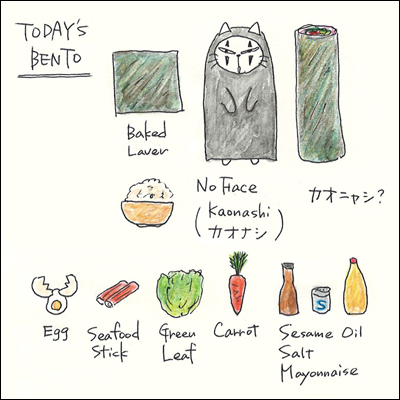 TODAY'S
BENTO
Baked
Laver
No Face
(Kaonashi
カオナシ)
カオニャシ?
Egg
Seafood
Stick
Green
Leaf
Carrot
S
Sesame Oil
Salt
Mayonnaise